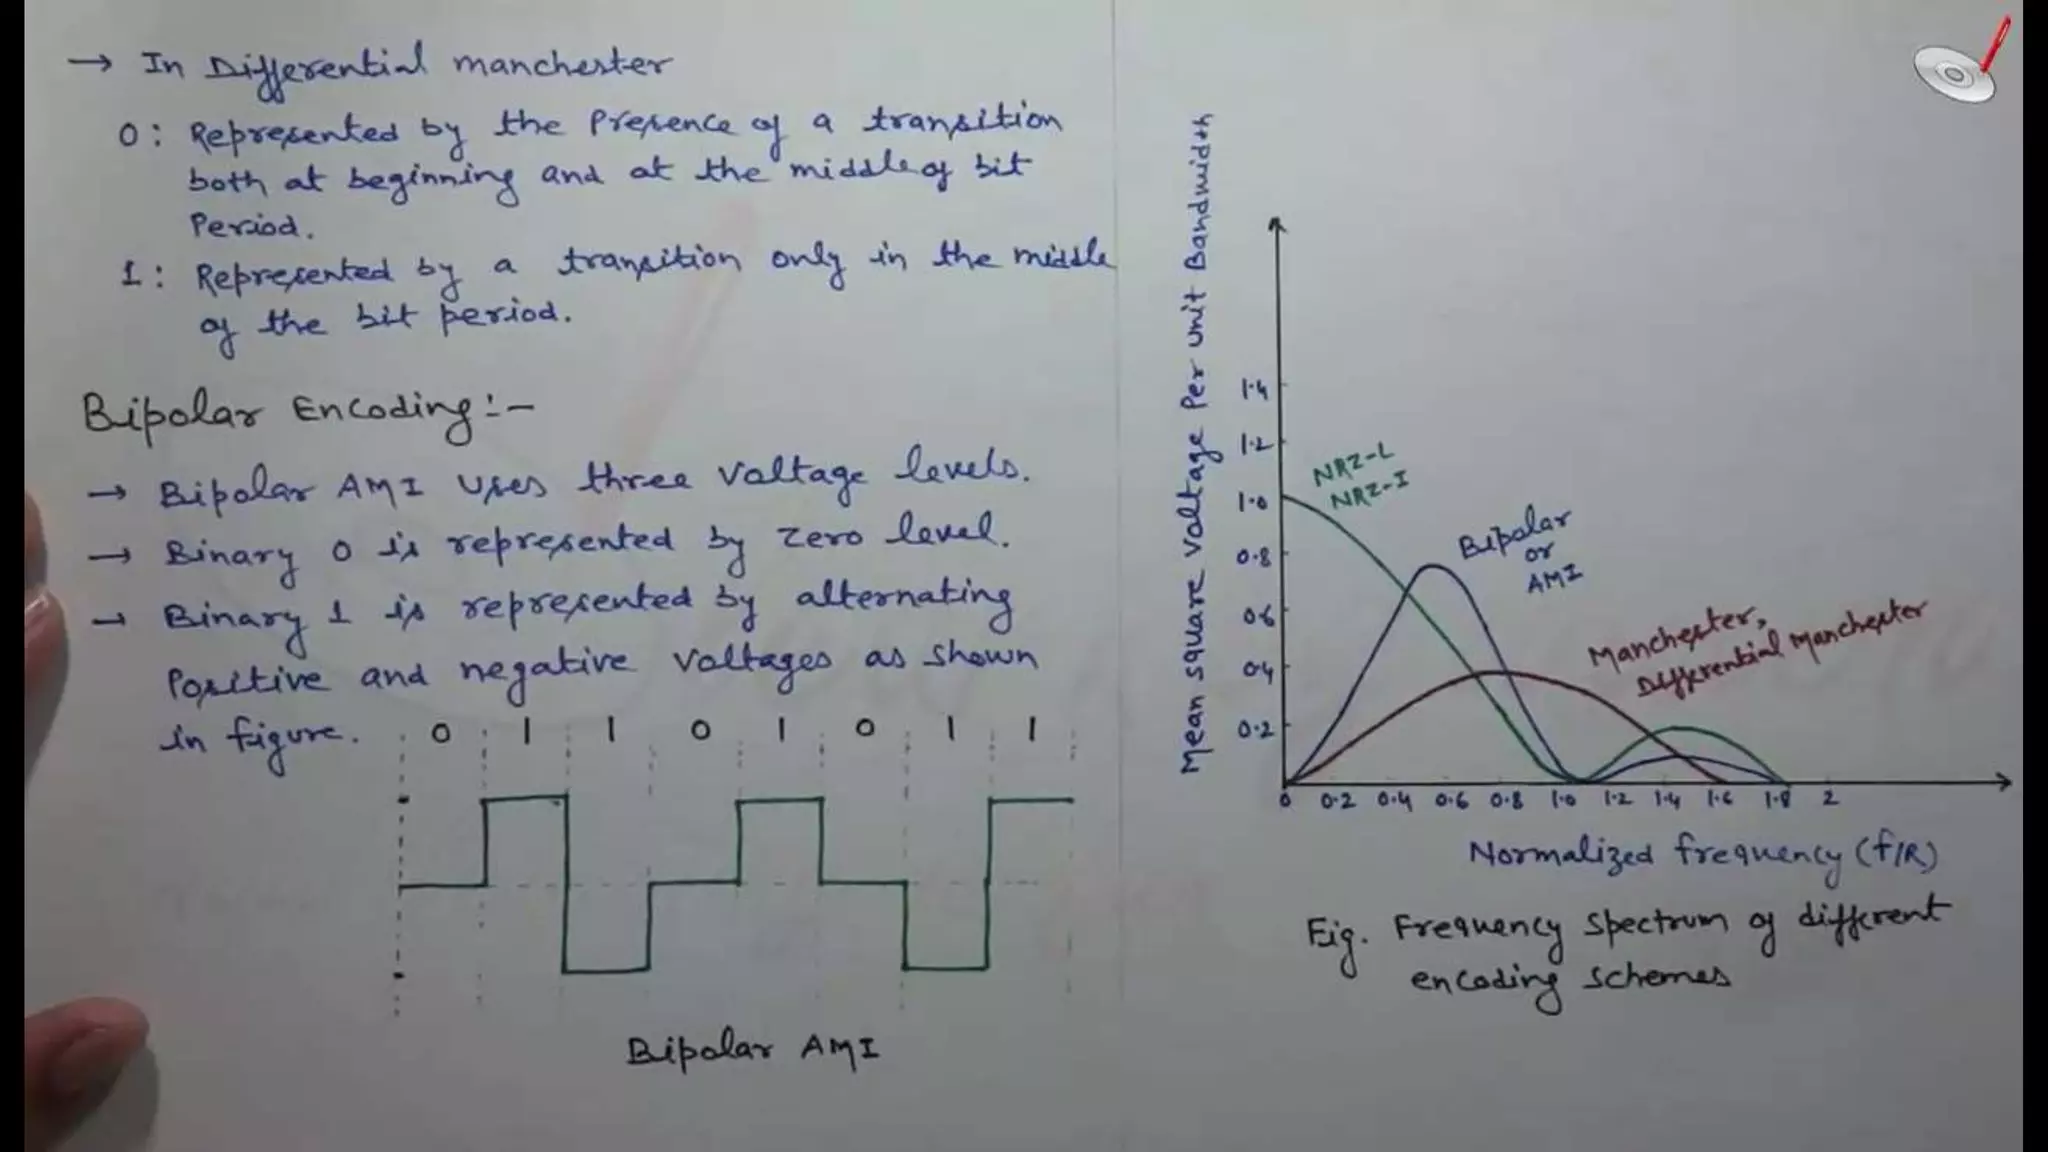 → In Differential manchester
0: Represented by the Presence of a transition
both at beginning and at the middle of bit
Period.
1: Represented by a transition only in the middle
of the bit period.
Bipolar Encoding:-
→ Bipolar AMI Uses three Voltage levels.
→ Binary 0 is represented by Zero level.
→ Binary 1 is represented by alternating
Positive and negative Voltages as shown
in figure.
0 1 1 0 1 0 1 1
Bipolar AMI
Mean square Voltage Per unit Bandwidth
1.4
1.2
1.0
0.8
0.6
0.4
0.2
NRZ-L
NRZ-I
Bipolar
or
AMI
Manchester,
Differential Manchester
0 0.2 0.4 0.6 0.8 1.0 1.2 1.4 1.6 1.8 2
Normalized frequency (f/R)
Fig. Frequency Spectrum of different
encoding schemes